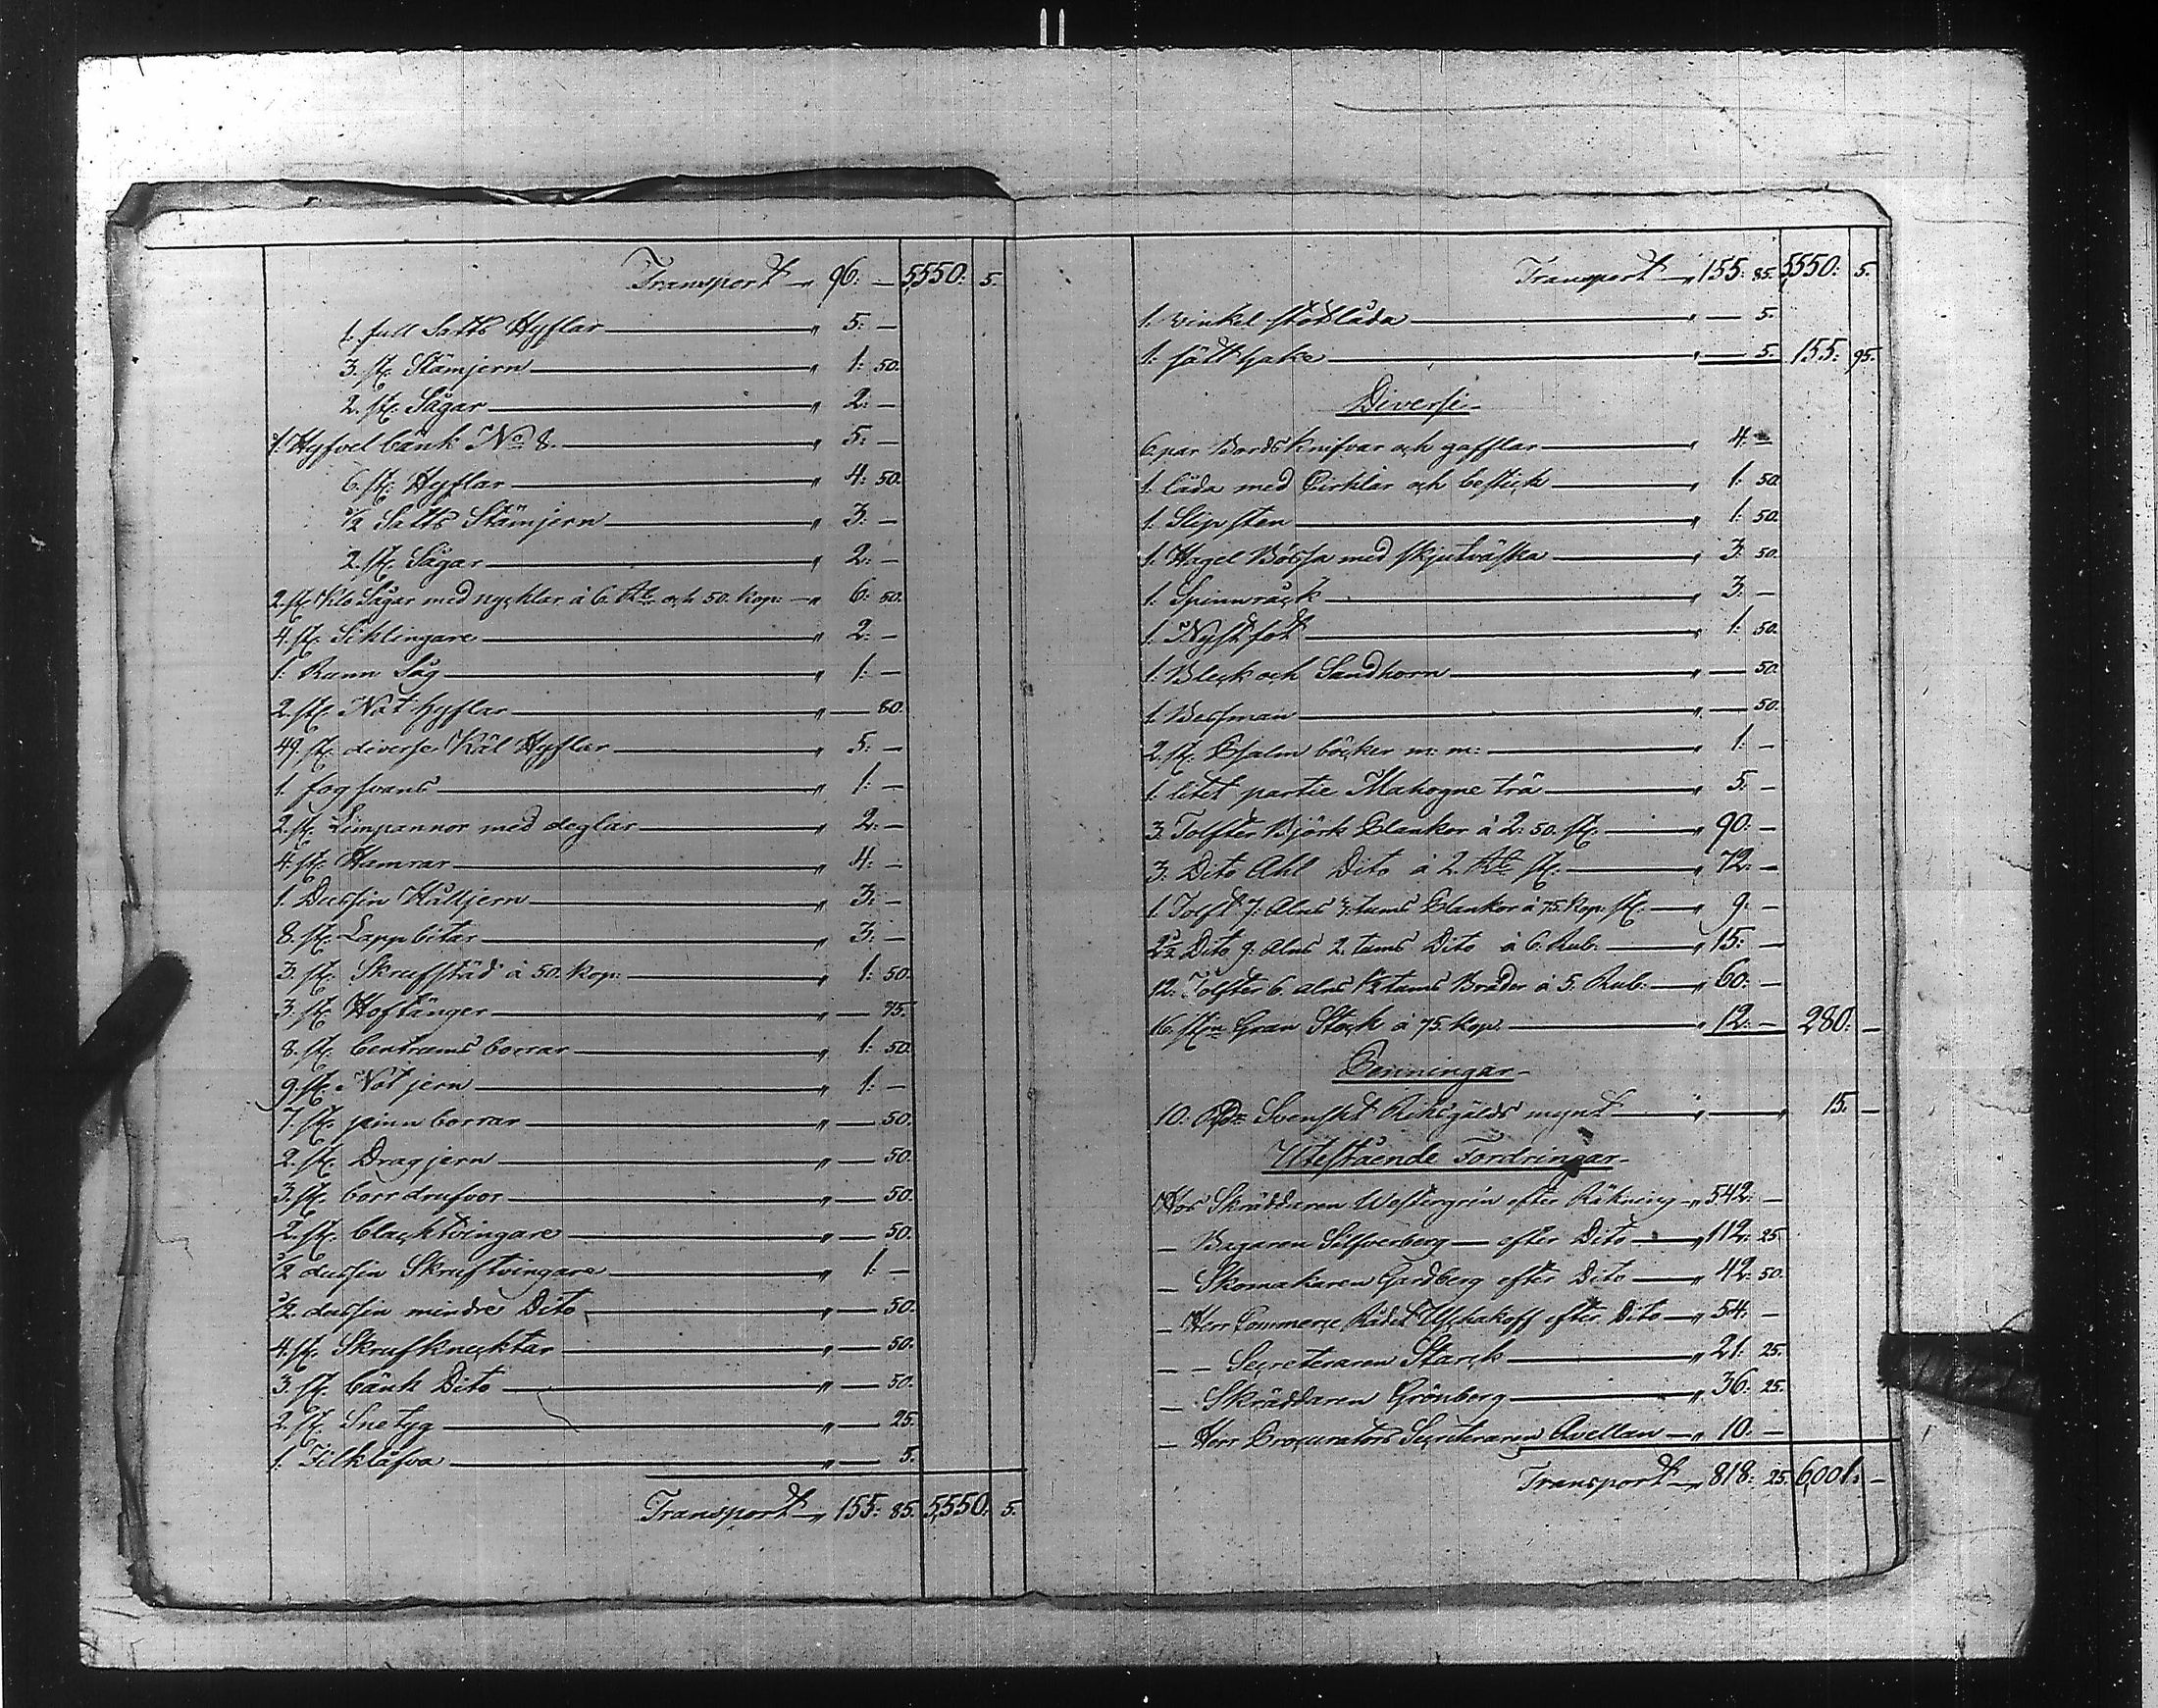 Transport " 96: — 5,550: 5.
1. full Satts Hyflar " 5: —
3. st. Stämjern " 1: 50.
2. st. Sågar " 2: —
1. Hyfvel bänk No 8. " 5: —
6. st. Hyflar " 4: 50.
1/2 Satts Stämjern " 3: —
2. st. Sågar " 2: —
2. st. Sågar med nycklar à 6. Rub. och 50. Kop: " 6: 50.
4. st. Siklingare " 2: —
1: Ramm Såg " 1: —
2. st. Not hyflar " — 80.
49. st. diverse Käl Hyflar " 5: —
1. fog svans " 1: —
2. st. Limpannor med deglar " 2: —
4. st. Hamrar " 4: —
1. Dussin Hålljern " 3: —
8. st. Lappbitar " 3: —
3. st. Skrufstäd à 50. Kop: " 1: 50.
3. st. Hoftänger " — 75.
8. st. Centrums borrar " 1: 50.
9. st. Not jern " 1: —
7. st. pinn borrar " — 50.
2. st. Dragjern " — 50.
3. st. borr drufvor " — 50.
2. st. Blacktvingare " — 50.
1/2 dussin Skruftvingare " 1: —
1/2 dussin mindre Dito " — 50.
4. st. Skrufknecktar " — 50.
3. st. bänk Dito " — 50.
2. st. Snetyg " — 25.
1. Filklåfva " — 5.
Transport " 155: 85. 5,550: 5.
Transport " 155: 85. 5,550: 5.
1. vinkel stötslåda " — 5.
1: hake " — 5. 155: 95.
Diversi
6 par Bords knifvar och gafflar " 4: —
1. låda med Cirklar och bestick " 1: 50.
1. Slipsten " 1: 50.
1. Hagel Bössa med skjutväska " 3: 50.
1. Spinnråck " 3: —
1. Nystfot " 1: 50.
1. Bleck och Sandhorn " — 50.
1. Bessman " — 50.
2. st. Psalm böcker m: m: " 1: —
1. litet partie Mahogne trä " 5: —
3. Tolfter Björk Plankor à 2: 50. st. " 90: —
3. Dito Ahl Dito à 2. Rub. st. " 72: —
1 Tolft 7: Alns 3. tums Plankor à 75. Kop. st. " 9: —
2 1/2 Dito 9: Alns 2. tums Dito à 6. Rub. " 15: —
12. Tolfter 6. alns 1 1/2 tums Bräder à 5. Rub. " 60: —
16. Gran Stock à 75. Kop. " 12: — 280: —
Penningar
10: Svenskt Riksgälds mynt " — " 15. —
Utestående Fordringar
Hos Skräddaren Westergrén efter Räkning " 542: —
— Bagaren Silfverberg — efter Dito " 112: 25.
— Skomakaren Gardberg efter Dito " 42: 50.
— Herr Commerce Rådet Uschakoff efter Dito " 54: —
— — Secreteraren Starck " 21: 25.
— Skräddaren Grönberg " 36: 25.
— Herr Procurators Secreteraren Avellan " 10: —
Transport " 818: 25. 6,001: —